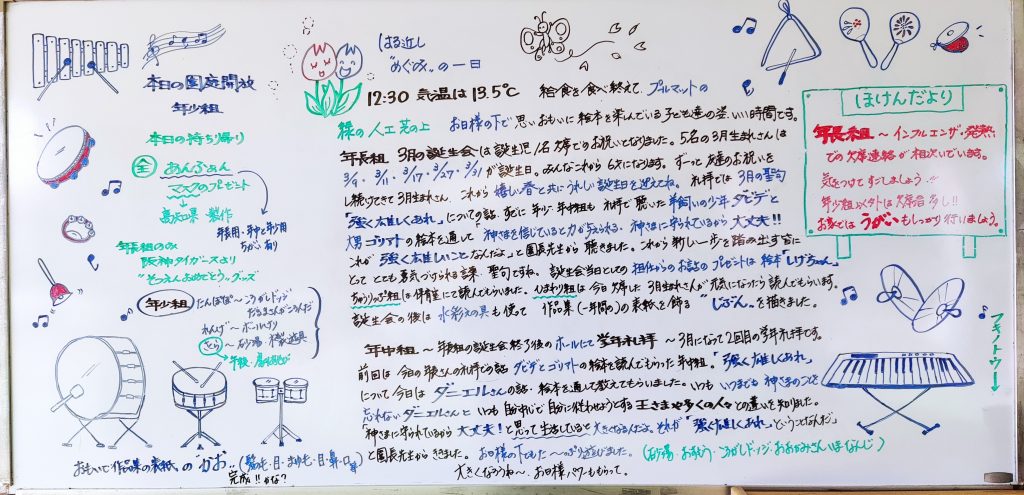 本日の園庭開放
年少組
本日の持ち帰り
全 あんふぁん
マスクのプレゼント
年長組のみ
阪神タイガースより
"そつえんおめでとう"グッズ
年少組 たんぽぽ〜こうがしドッジ
だるまさんがころんだ
れんげ〜ボールけり
さくら〜砂場・固定遊具
おもいで作品集の表紙の"かお"
完成!!かな?
はる近し
"めぐみ"の一日
12:30 気温は13.5℃ 給食を食べ終えて、プルマットの
緑の人工芝の上 お日様の下で思いおもいに絵本を楽しんでいる子ども達の姿。いい時間です。
年長組 3月の誕生会は誕生児1名欠席でのお祝いとなりました。5名の3月生まれさんは
3/9、3/11、3/17、3/27、3/31が誕生日。みんなこれから6才になります。ずーっと友達のお祝いを
し続けてきて3月生まれさん、これから嬉しい春と共にうれしい誕生日を迎えてね。礼拝では3月の聖句
「強く雄しくあれ」についての話。すでに年少・年中組も礼拝で聴いた羊飼いの少年ダビデと
大男ゴリアトの絵本を通して「神さまを信じていると力が与えられる、神さまに守られているから大丈夫!!
これが強く雄しいことなんだよ」と園長先生から聴きました。これから新しい一歩を踏み出す皆に
とって とても勇気づけられる言葉・聖句ですね。誕生会当日としての担任からのお話のプレゼントは絵本「しげちゃん」。
ちゅうりっぷ組は保育室にて読んでもらいました。ひまわり組は今日欠席した3月生まれさんが元気になったら読んでもらいます。
誕生会の後は水彩えの具も使って 作品集(一年間の)の表紙を飾る"じぶん"を描きました。
年中組〜年長組の誕生会終了後のホールにて学年礼拝 〜3月になって2回目の学年礼拝です。
前回は今日の年長さんの礼拝での話 ダビデとゴリアトの絵本を読んでもらった年中組。「強く雄しくあれ」
について今日はダニエルさんの話・絵本を通して教えてもらいました。いつも いつまでも神さまのことを
忘れないダニエルさんと いつも自分中心で自分に従わせようとする王さまや多くの人々との違いを知りました。
「神さまに守られているから大丈夫!と思って生活していると大きくなるんだよ。それが「強く雄しくあれ」ということなんだ」
と園長先生からききました。お日様の下でたーっぷり遊びました。
大きくなろうね〜、お日様パワーももらって。
ほけんだより
年長組〜インフルエンザ・発熱
での欠席連絡が相次いでいます。
気をつけてすごしましょう!!
年少組以外は欠席者多し!!
お家ではうがいもしっかり行いましょう。
フキノトウ→